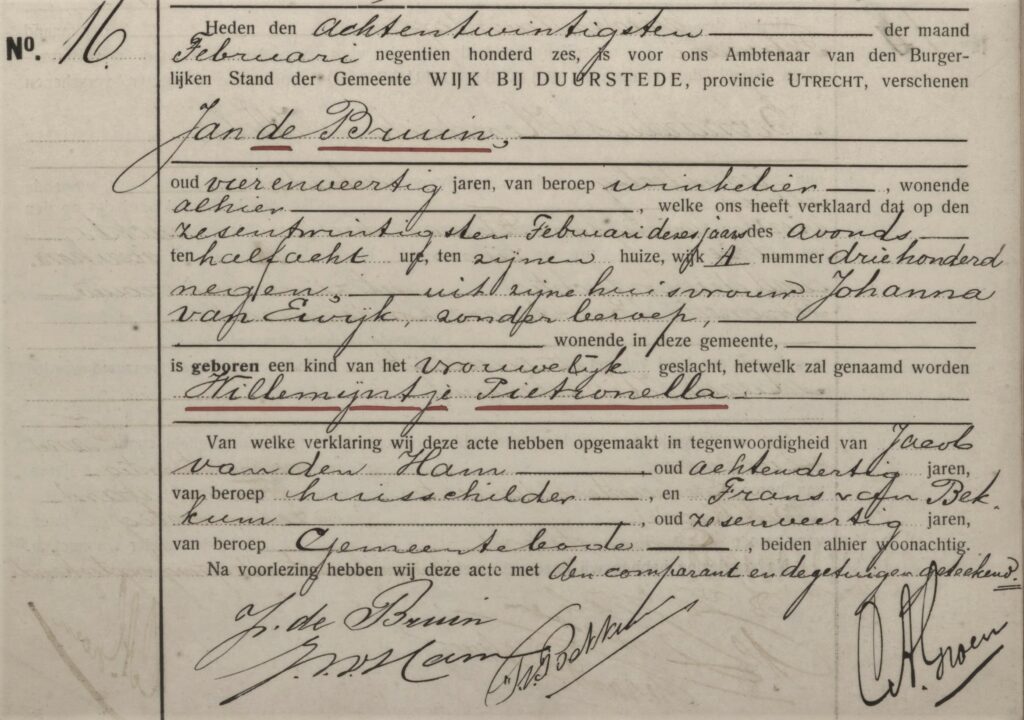 No. 16.
Heden den achtentwintigsten der maand
Februari negentien honderd zes, is voor ons Ambtenaar van den Burger-
lijken Stand der Gemeente WIJK BIJ DUURSTEDE, provincie UTRECHT, verschenen
Jan de Bruin,
oud vierenveertig jaren, van beroep winkelier, wonende
alhier, welke ons heeft verklaard dat op den
zesentwintigsten Februari dezes jaars des avonds
ten half acht ure, ten zijnen huize, wijk A nummer driehonderd
negen, uit zijne huisvrouw Johanna
van Ewijk, zonder beroep,
wonende in deze gemeente,
is geboren een kind van het vrouwelijk geslacht, hetwelk zal genaamd worden
Willemijntje Pietronella.
Van welke verklaring wij deze acte hebben opgemaakt in tegenwoordigheid van Jacob
van den Ham oud achtendertig jaren,
van beroep huisschilder, en Frans van Bek-
kum, oud zesenveertig jaren,
van beroep Gemeentebode, beiden alhier woonachtig.
Na voorlezing hebben wij deze acte met den comparant en de getuigen geteekend.
J. de Bruin
J. v. d. Ham
Groen